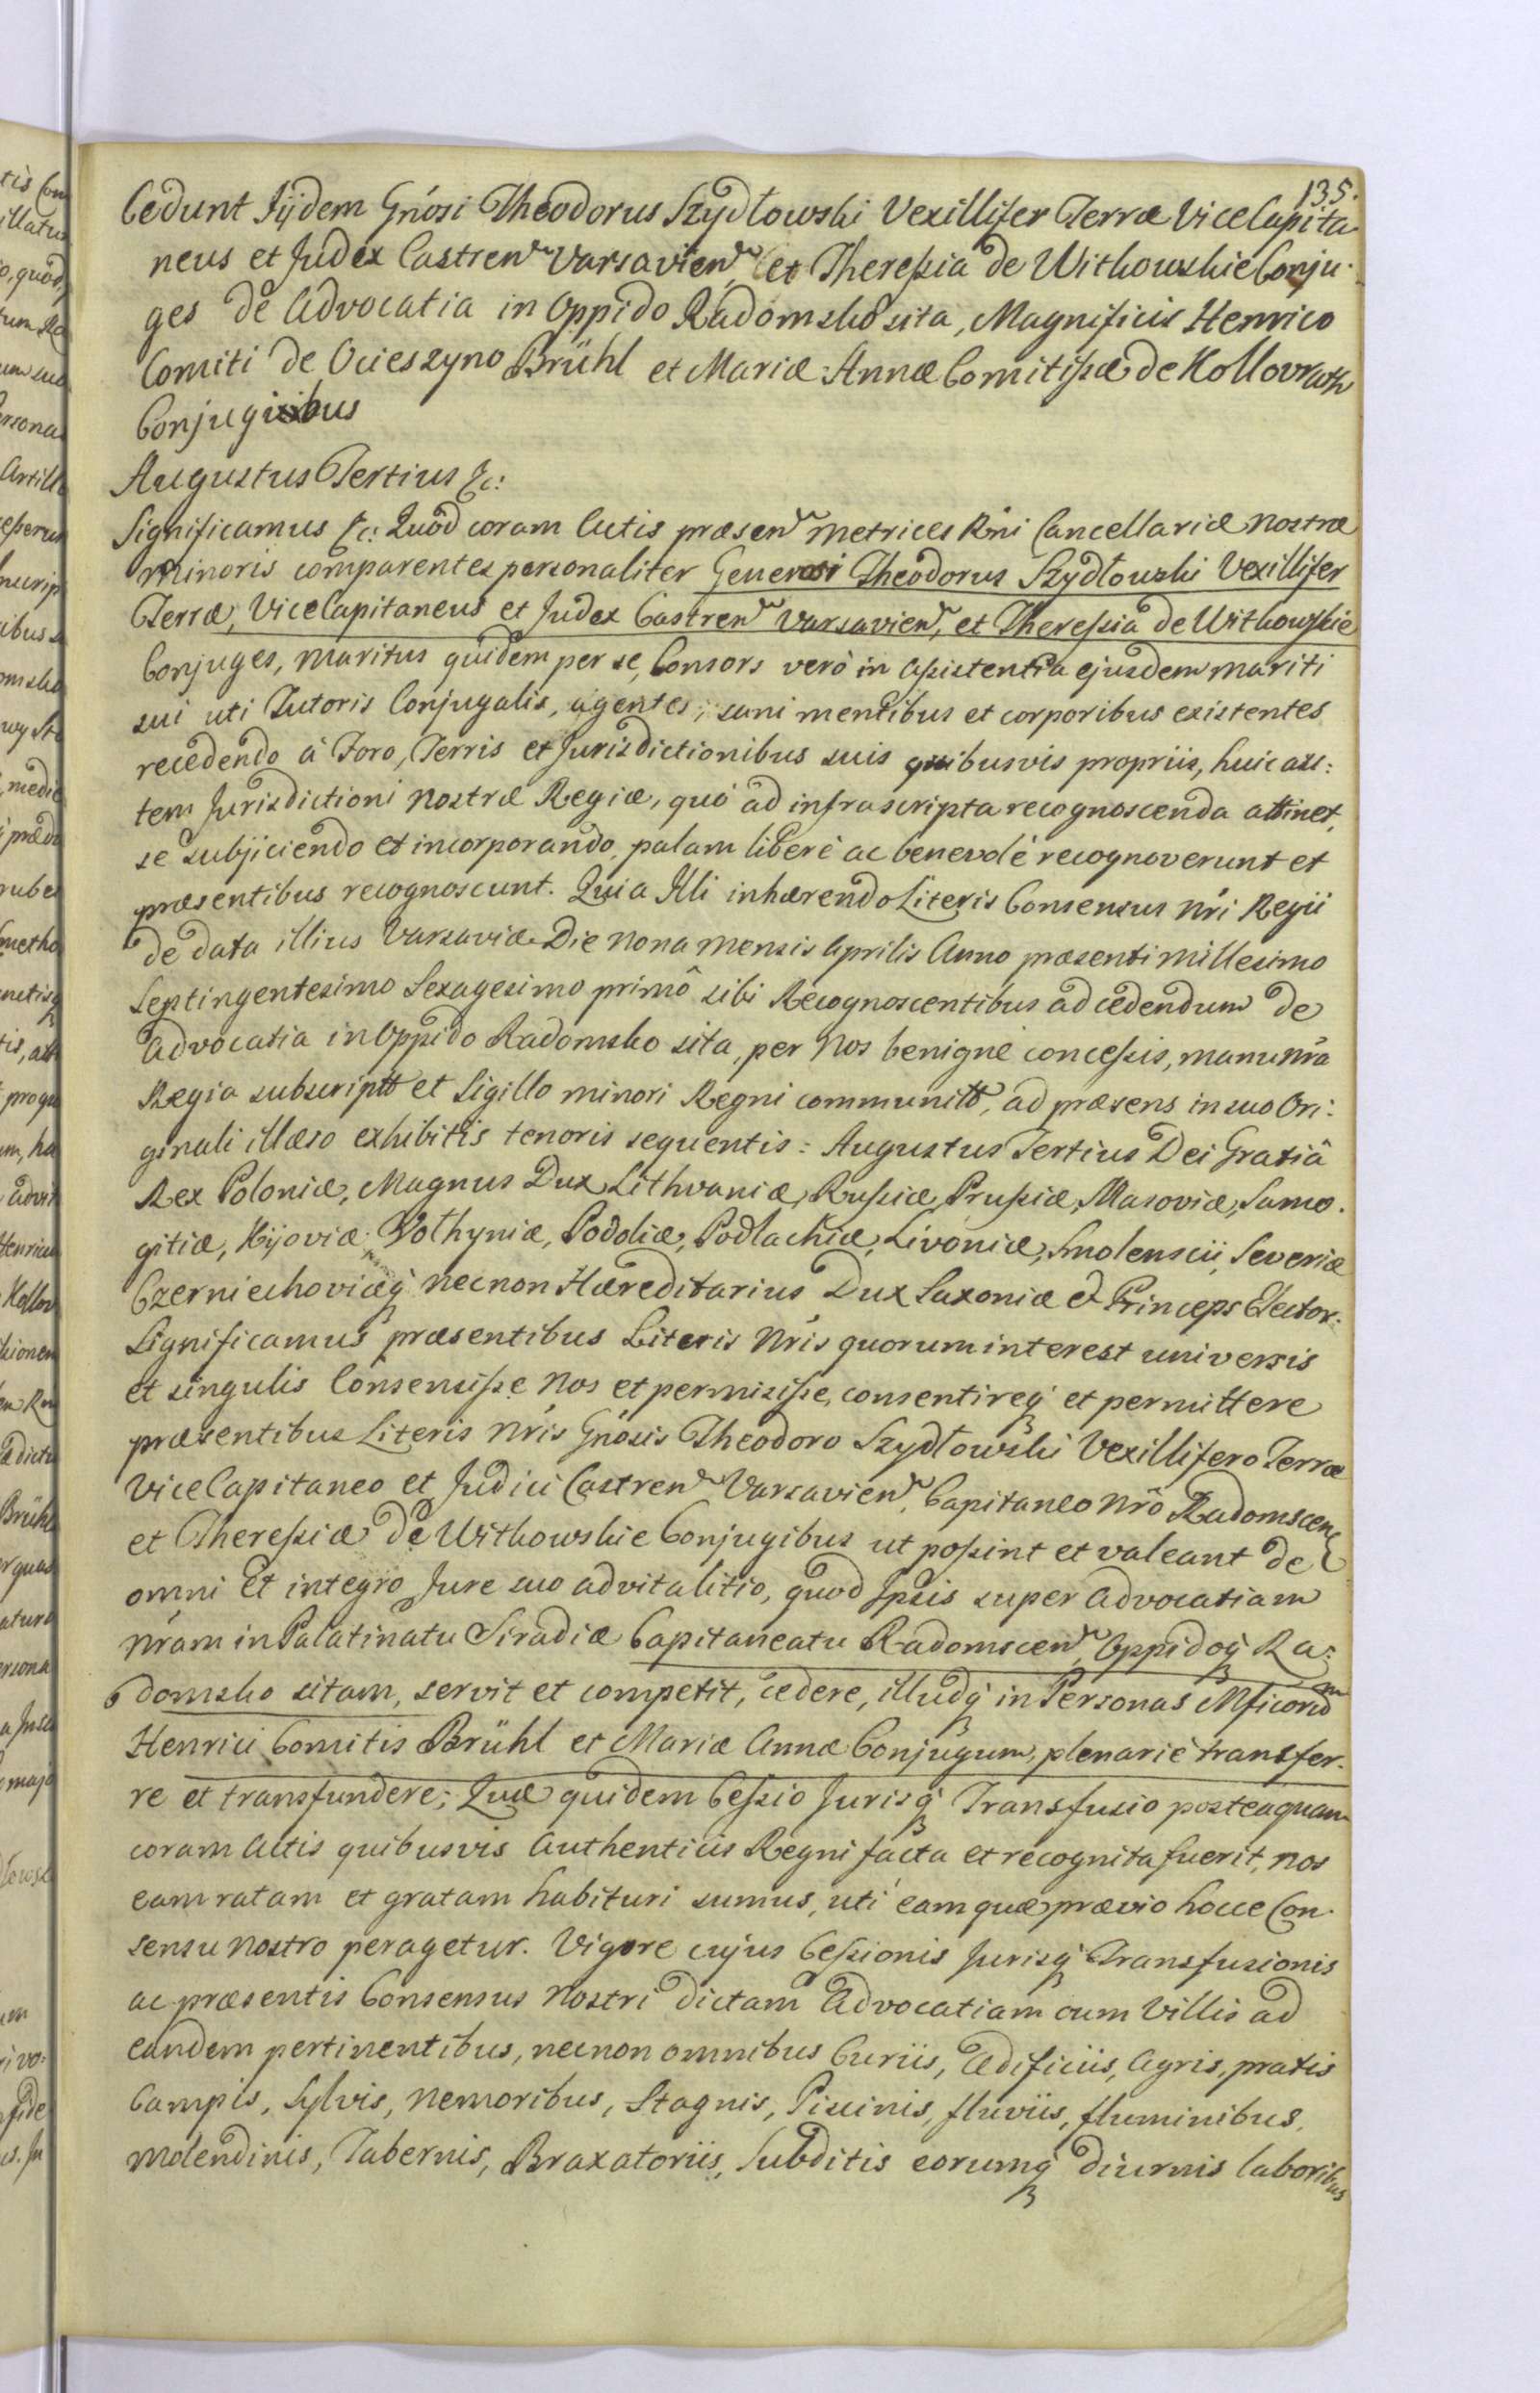 135.
Cedunt Iijdem Gnósi Theodorus Szydłowski Vexillifer Terræ Vice Capita
neus et Judex Castren Varsavien, et Theressia de Witkowskie Conju-
ges de Advocatia in Oppido Radomsko sita, Magnificis Henrico
Comiti de Ocieszyno Brühl et Mariæ Annæ Comitissæ de Kollowrath
Conjugibus
Augustus Tertius &c:
Significamus &c: Quod coram Actis præsen Metrices Rni Cancellariæ Nostræ
Minoris comparentes personaliter Generosi Theodorus Szydłowski Vexillifer
Terræ, ViceCapitaneus et Judex Castren Varsavien, et Theressia de Witkowskie
Conjuges, maritus quidem per se, Consors verò in assistentia ejusdem mariti
sui uti Tutoris Conjugalis, agentes, sani mentibus et corporibus existentes
recedendo à Foro, Terris et Jurisdictionibus suis quibusvis propriis, huic au-
tem Jurisdictioni Nostræ Regiæ, quó ad infrascripta recognoscenda attinet,
se subjiciendo et incorporando, palam liberè ac benevolè recognoverunt et
præsentibus recognoscunt. Quia Illi inhærendo Literis Consensus Nri Regii
de data illius Varsaviæ Die Nona Mensis Aprilis Anno præsenti Millesimo
Septingentesimo Sexagesimo primô sibi Recognoscentibus ad cedendum de
Advocatia in Oppido Radomsko sita, per Nos benignè concessis, manu Nra
Regia subscriptt et Sigillo minori Regni communitt, ad præsens in suo Ori-
ginali illæso exhibitis tenoris sequentis: Augustus Tertius Dei Gratiâ
Rex Poloniæ, Magnus Dux Lithvaniæ, Russiæ, Prussiæ, Masoviæ, Samo-
gitiæ, Kijoviæ, Volhyniæ, Podoliæ, Podlachiæ, Livoniæ, Smolenscii, Severiæ
Czerniechoviæq necnon Hæreditarius Dux Saxoniæ et Princeps Elector.
Significamus præsentibus Literis Nris quorum interest universis
et singulis Consensisse Nos et permisisse, consentireq et permittere
præsentibus Literis Nris Gnósis Theodoro Szydłowski Vexillifero Terræ
ViceCapitaneo et Judici Castren Varsavien, Capitaneo Nrô Radomscen
et Theressiæ de Witkowskie Conjugibus ut possint et valeant de
omni et integro Jure suo advitalitio, quod Ipsis super Advocatiam
Nram in Palatinatu Siradiæ Capitaneatu Radomscen, Oppidoq Ra-
domsko sitam, servit et competit, cedere, illudq in Personas Mficorum
Henrici Comitis Brühl et Mariæ Annæ Conjugum, plenariè transfer-
re et transfundere; Quæ quidem Cessio Jurisq Transfusio posteaquam
coram Actis quibusvis Authenticis Regni facta et recognita fuerit, nos
eam ratam et gratam habituri sumus, uti eam quæ prævio hocce Con-
sensu Nostro peragetur. Vigore cujus Cessionis Jurisq Transfusionis
ac præsentis Consensus Nostri dictam Advocatiam cum Villis ad
eandem pertinentibus, necnon omnibus Curiis, Ædificiis, Agris, pratis
Campis, Sylvis, Nemoribus, Stagnis, Piscinis, fluviis, fluminibus,
Molendinis, Tabernis, Braxatoriis, Subditis eorumq diurnis laboribus